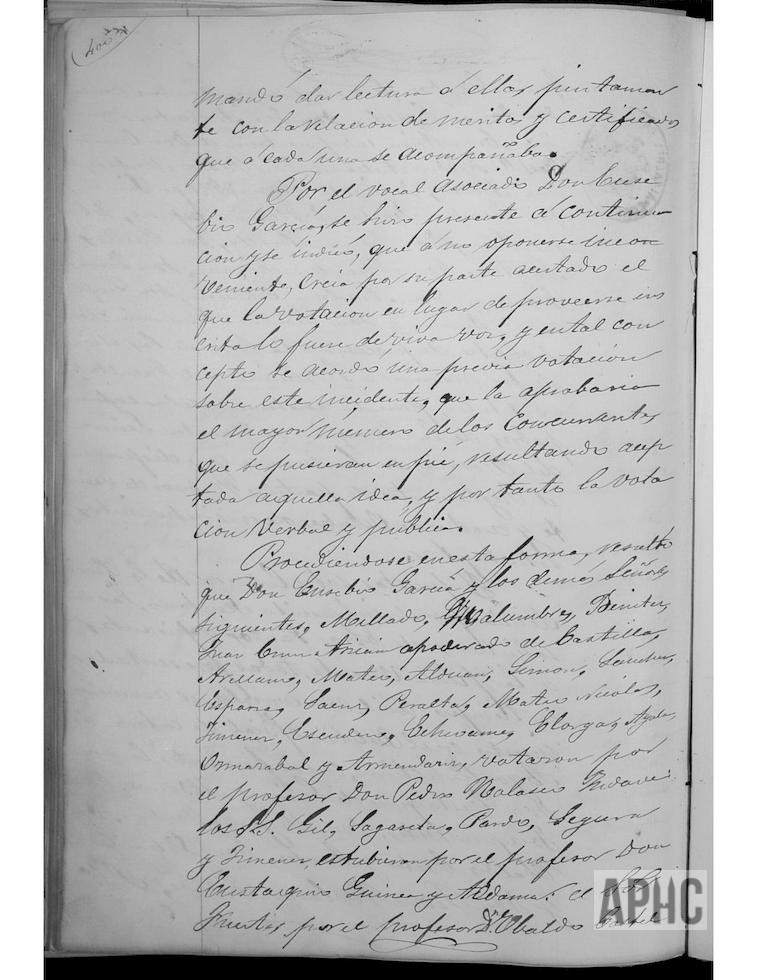 mandó dar lectura á ellas juntamen
te con la relacion de meritos y certificados
que á cada una se acompañaba.
Por el vocal asociado Don Euse
bio Garcia, se hizo presente á continua
cion y se indicó, que á no oponerse incon
veniente, creia por su parte acertado el
que la votacion en lugar de proveerse ins
crita lo fuese de viva voz, y en tal con
cepto se acordó una previa votación
sobre este incidente, que la aprobaria
el mayor número de los Concurrentes
que se pusieran en pié, resultando acep
tada aquella idea, y por tanto la vota
cion verbal y pública.
Procediendose en esta forma, resultó
que Don Eusebio Garcia y los demás Señores
siguientes, Mellado, Benitez,
Juan Cruz apoderado de Castilla,
Arellano, Mateo, Alduan, Simon, Sanchez,
Esparza, Saenz, Peralta, Mateo Nicolas,
Jimenez, Escudero, Echavarne, Elorga, Ayala,
Ormazabal y Armendariz, votaron por
el profesor Don Pedro Nolasco
los S.S. Gil, Sagaseta, Pardo, Segura
y Jimenez, estubieron por el profesor Don
Eustaquio Guinea y Aldama: el Sor.
Fuertes por el profesor Dn. Ubaldo Castel
APHC